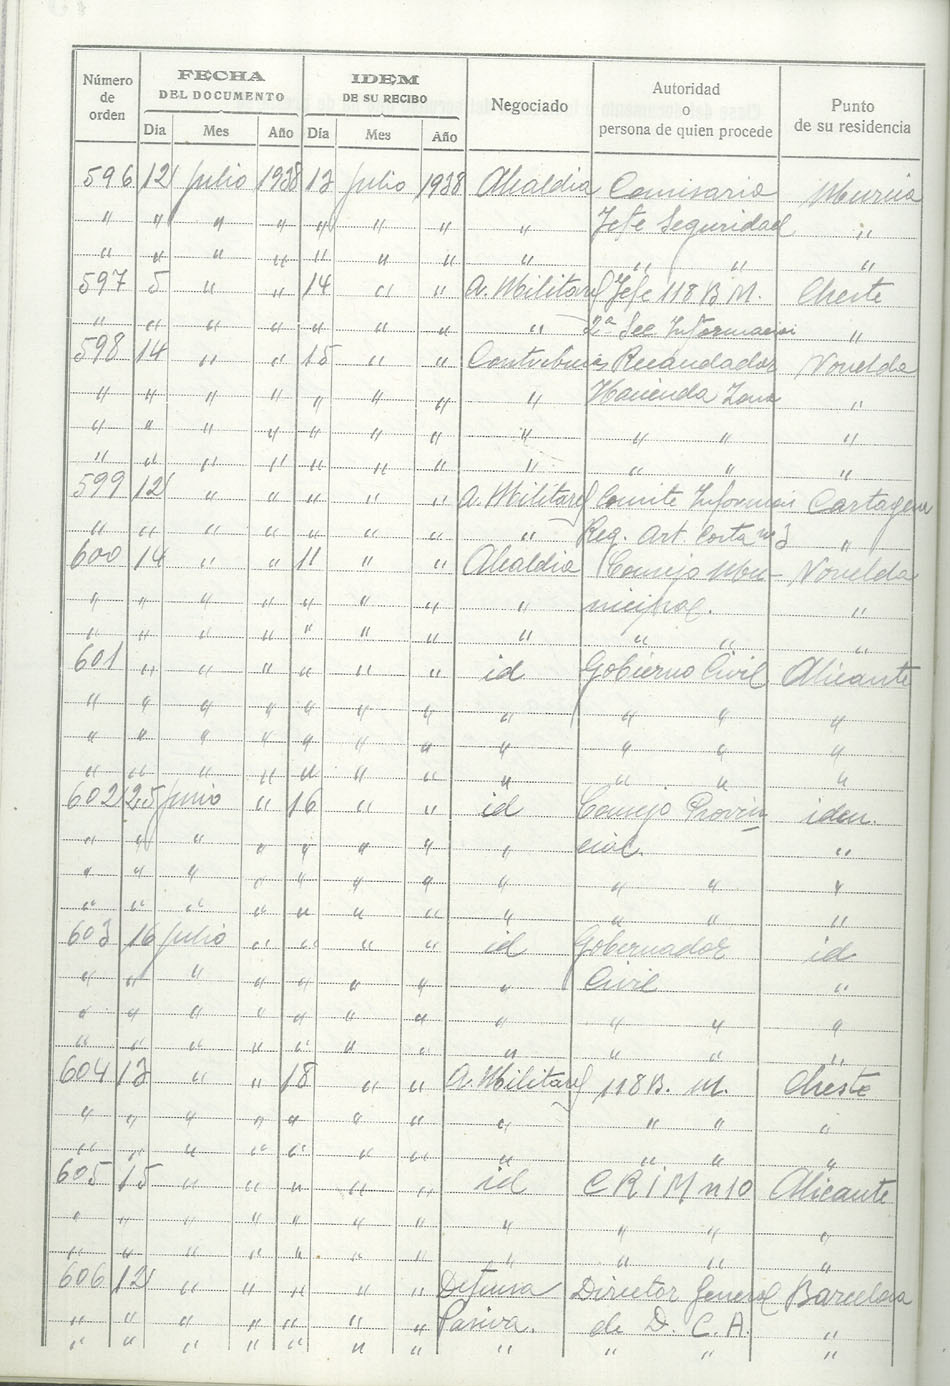 Número de orden | FECHA DEL DOCUMENTO | IDEM DE SU RECIBO | Negociado | Autoridad o persona de quien procede | Punto de su residencia
Día | Mes | Año | Día | Mes | Año
596 12 Julio 1938 13 Julio 1938 Alcaldia Comisaria Murcia
" " " " " " " " Jefe Seguridad "
" " " " " " " " " " "
597 5 " " 14 " " A. Militares Jefe 118 B M. Cheste
" " " " " " " " 2ª Sec Informacion "
598 14 " " 15 " " Recaudador Novelda
" " " " " " " " Hacienda Zona "
" " " " " " " " " " "
" " " " " " " " " " "
599 12 " " " " " A. Militares Comite Informacion Cartagena
" " " " " " " " Reg. Art. Costa nº 3 "
600 14 " " 11 " " Alcaldia Consejo Mu- Novelda
" " " " " " " " nicipal. "
" " " " " " " " " " "
601 " " " " " " id Gobierno Civil Alicante
" " " " " " " " " " "
" " " " " " " " " " "
" " " " " " " " " " "
602 25 Junio " 16 " " id Consejo Provin idem.
" " " " " " " " cial. "
" " " " " " " " " " "
" " " " " " " " " " "
603 16 Julio " " " " id Gobernador id
" " " " " " " " Civil "
" " " " " " " " " " "
" " " " " " " " " " "
604 13 " " 18 " " A. Militares 118 B. M. Cheste
" " " " " " " " " " "
" " " " " " " " " " "
605 15 " " " " " id C R i M n 10 Alicante
" " " " " " " " " " "
" " " " " " " " " " "
606 12 " " " " " Defensa Director General Barcelona
" " " " " " " Pasiva. de D. C. A. "
" " " " " " " " " " "